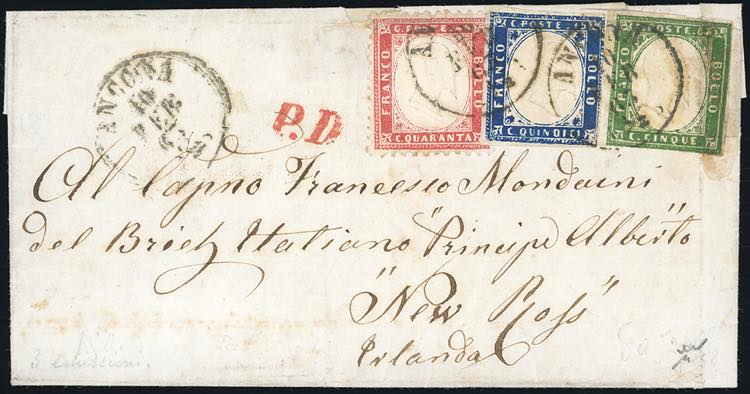 ANCONA
10
FEB
63
P.D.
C. POSTE
FRANCO
BOLLO
C. QUARANTA
C. POSTE 15
FRANCO
BOLLO
C. QUINDICI
C. POSTE
FRANCO
BOLLO
C. CINQUE
Al Capno Francesco Mondaini
del Brich Italiano "Principe Alberto"
"New Ross"
Irlanda
3 emissioni.